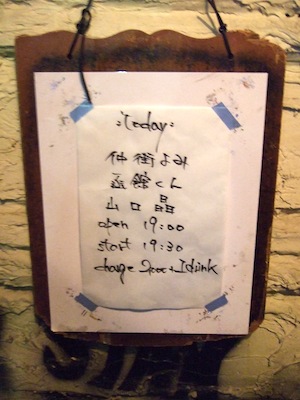 :Today:
仲街よみ
函館くん
山口晶
open 19:00
start 19:30
charge 2000+1drink